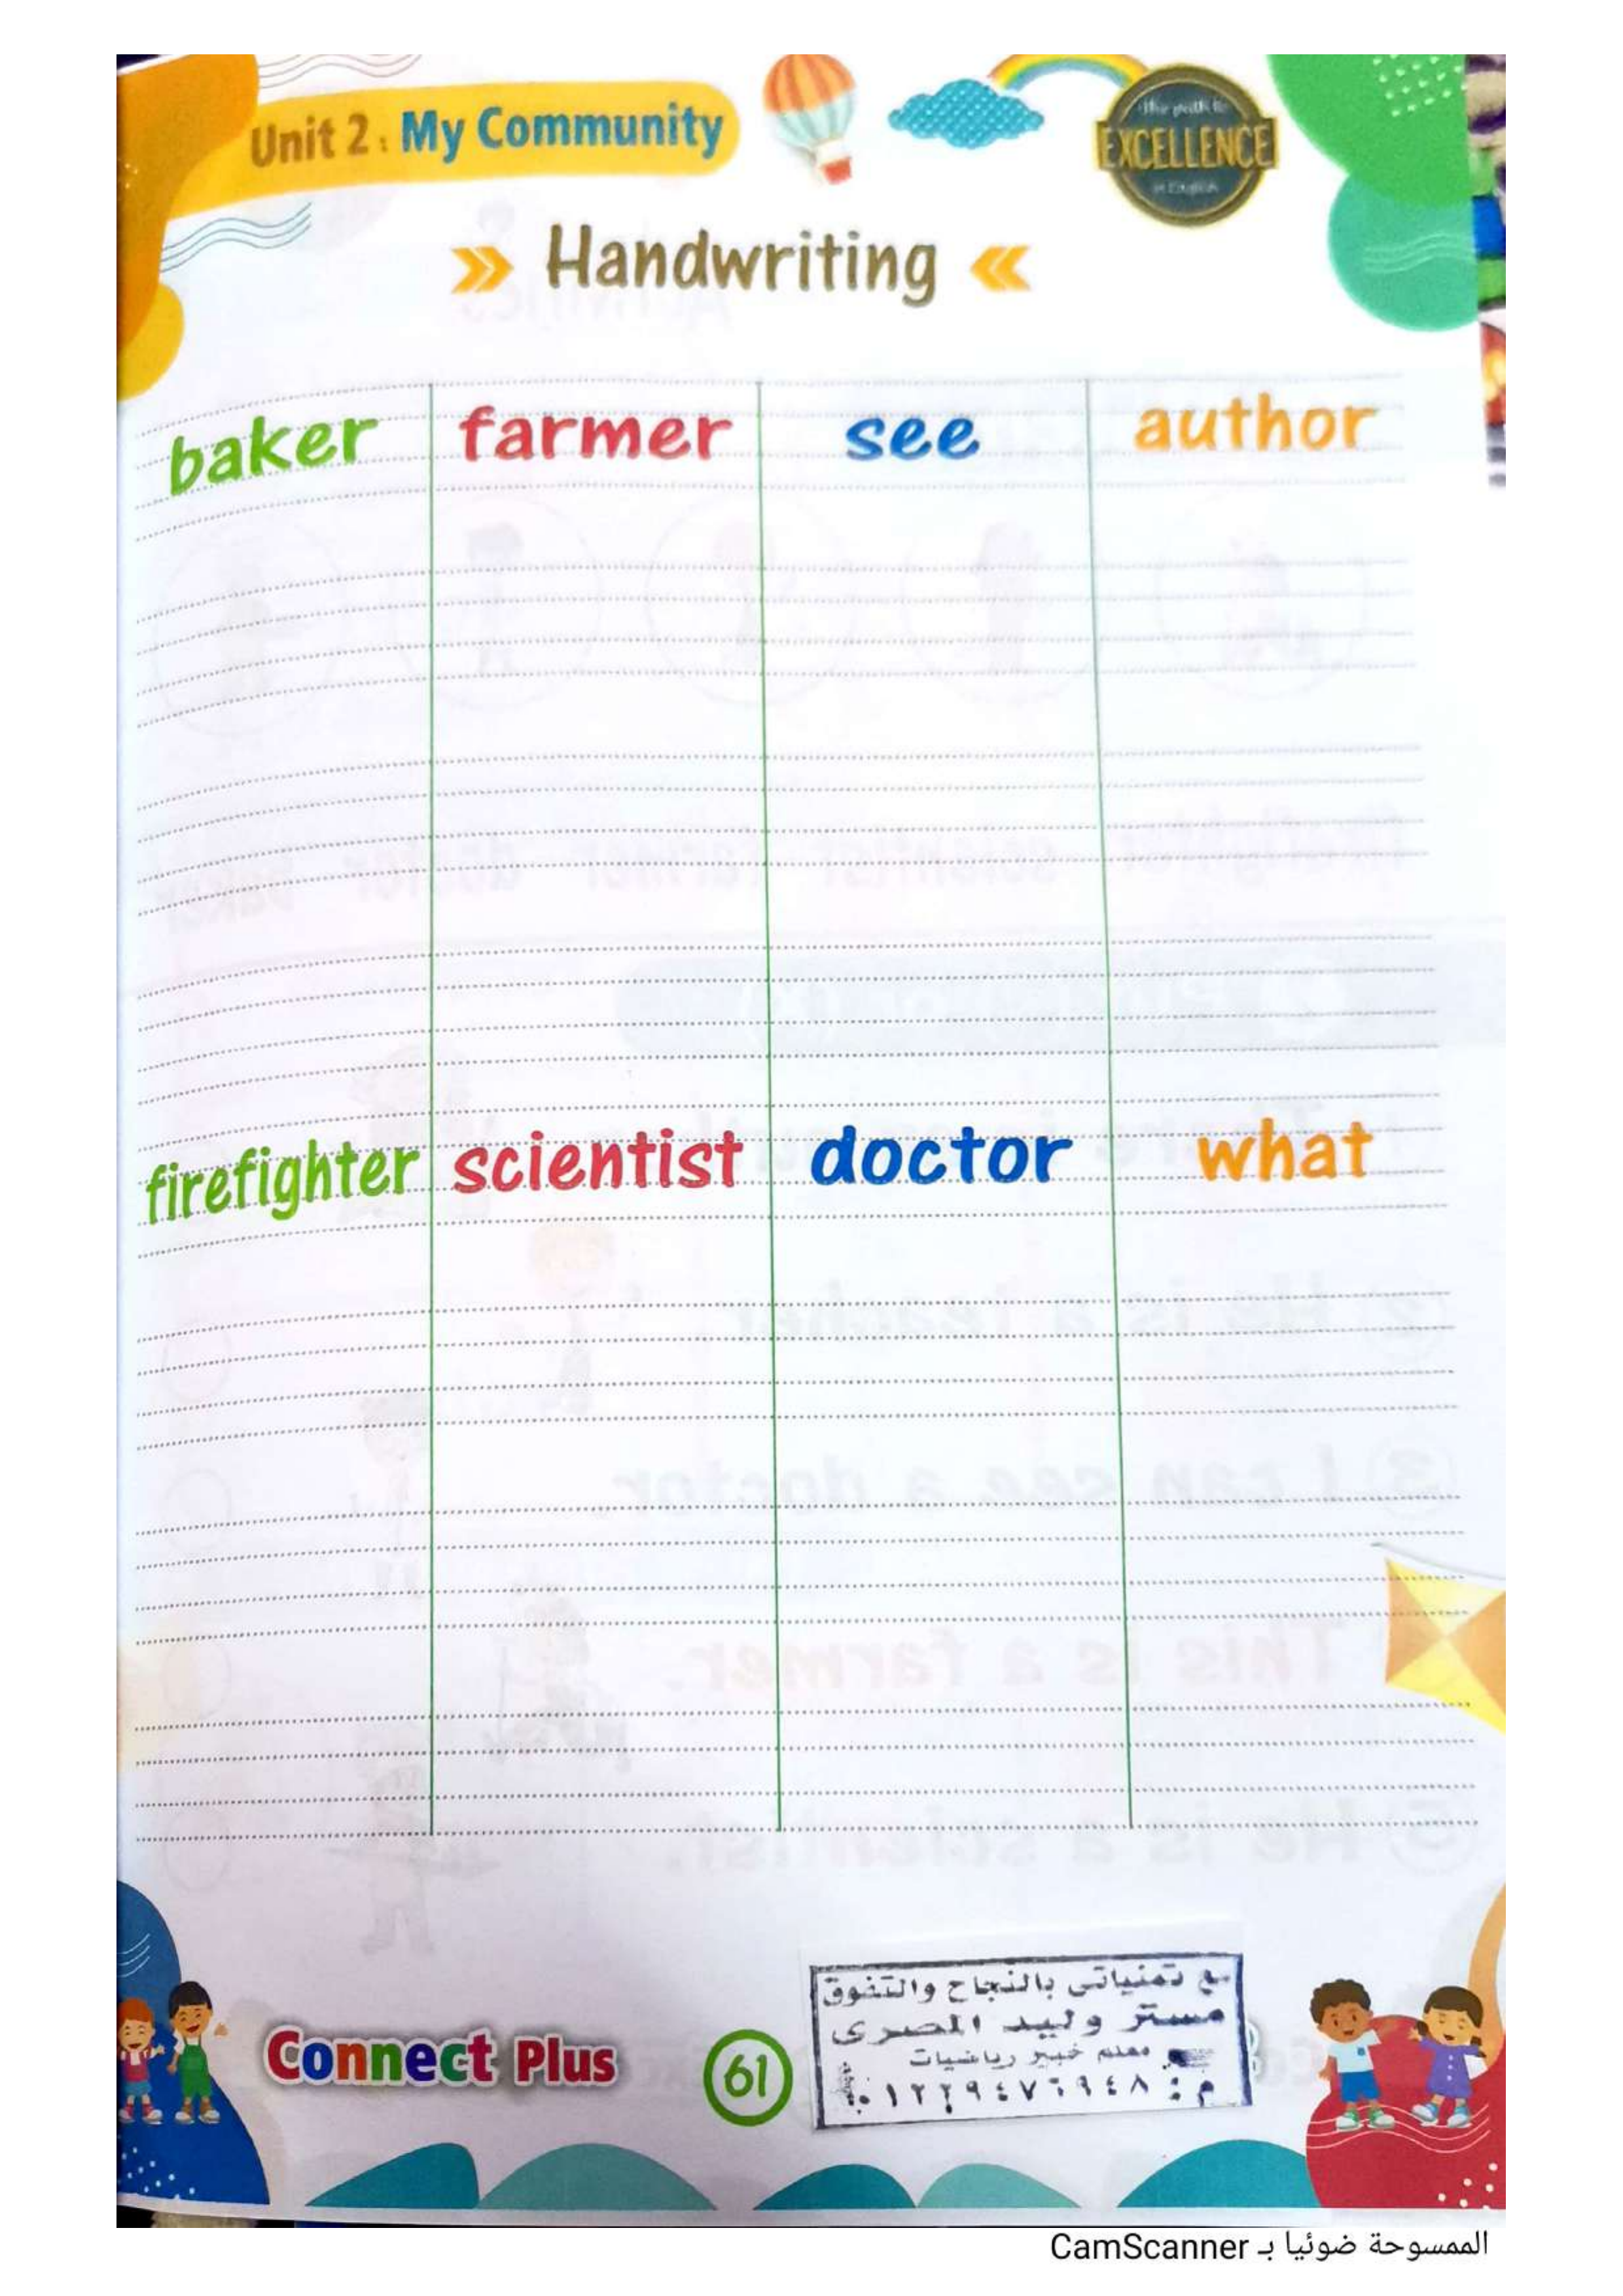 Unit 2 : My Community
The path to
EXCELLENCE
in English
Handwriting
baker farmer see author
firefighter scientist doctor what
Connect Plus
61
مع تمنياتى بالنجاح والتفوق
مستر وليد المصرى
معلم خبير رياضيات
م : ٠١٢٢٩٤٧٦٩٤٨
الممسوحة ضوئيا بـ CamScanner